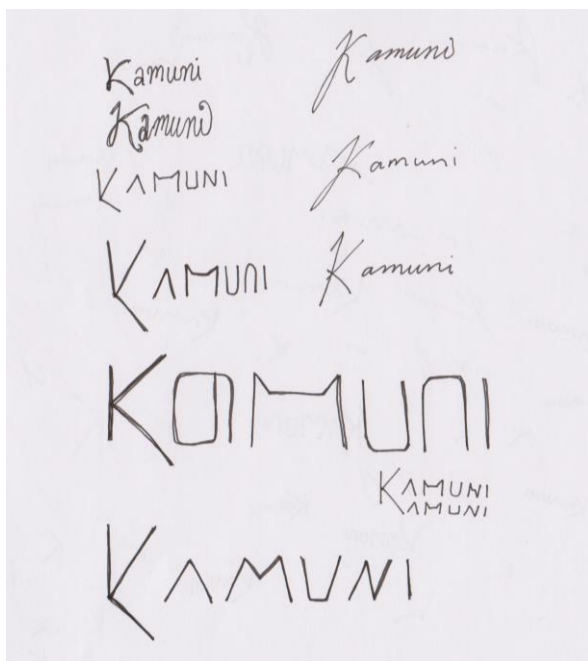 Kamuni
Kamuni
Kamuni
KAMUNI
Kamuni
KAMUNI
Kamuni
KaMUNI
KAMUNI
AMUNI
KAMUNI